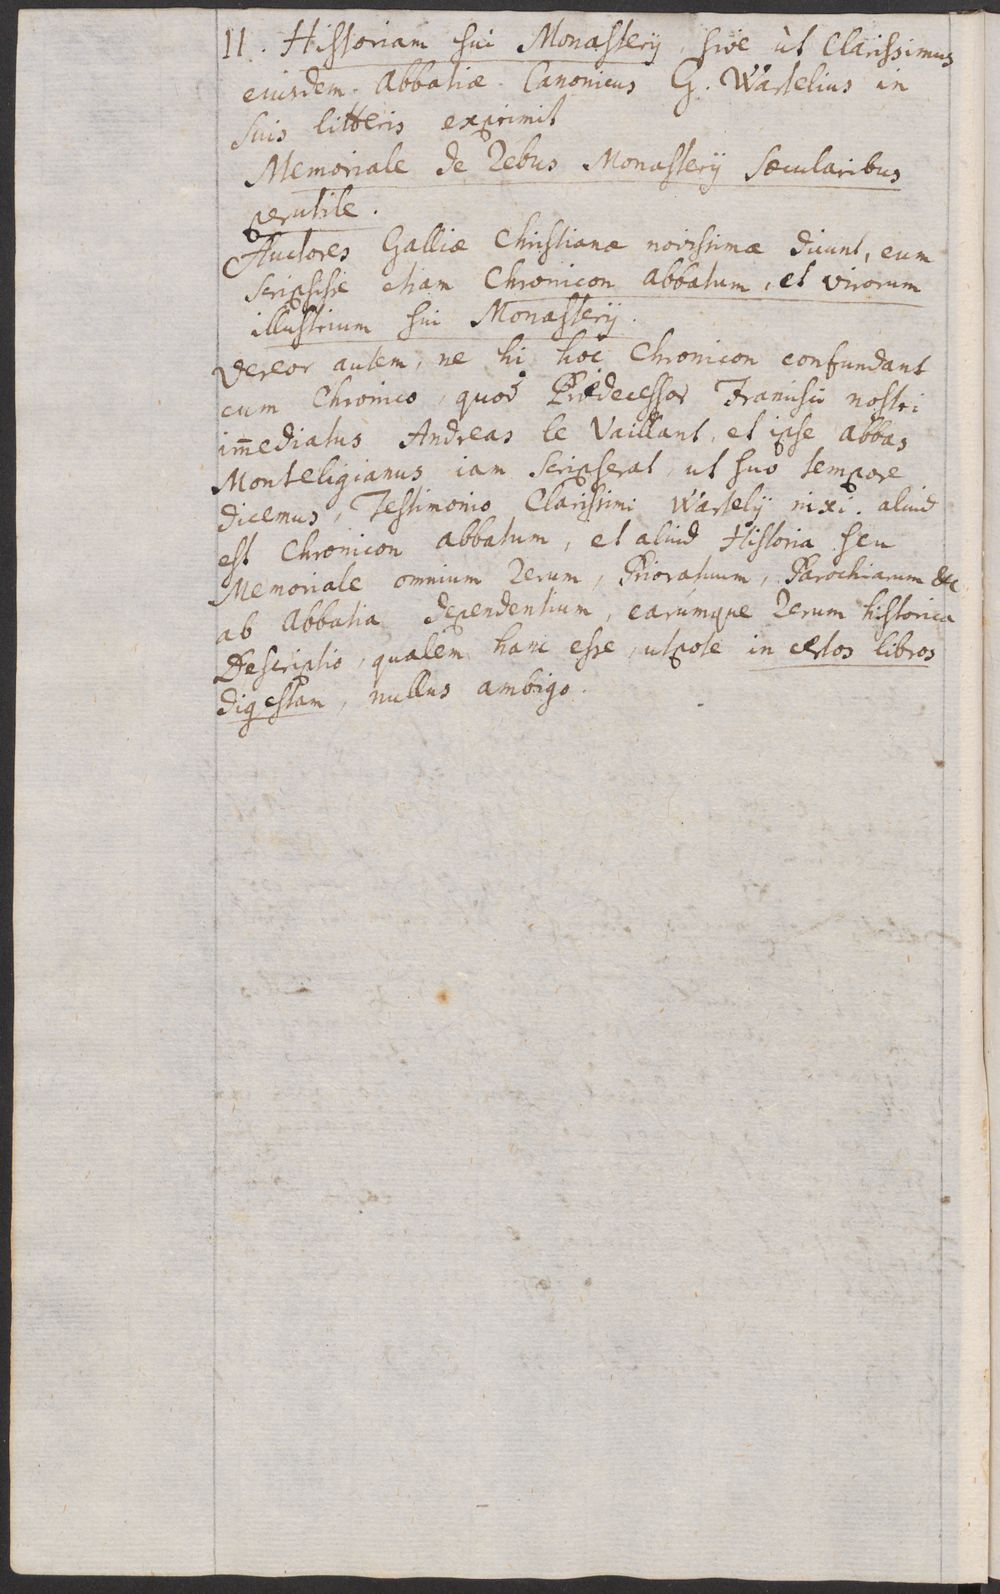 11. Historiam sui Monasterij, sive ut Clarissimus
eiusdem Abbatiæ Canonicus G. Wartelius in
suis litteris exprimit
Memoriale de Rebus Monasterij sæcularibus
perutile.
Auctores Galliæ Christianæ novissimæ dicunt, eum
scripsisse etiam Chronicon abbatum, et virorum
illustrium sui Monasterij.
Vereor autem, ne hi hoc Chronicon confundant
cum Chronico, quod Prædecessor Francisci nostri
im̄ediatus Andreas le Vaillant, et ipse abbas
Monteligianus iam scripserat, ut suo tempore
dicemus, Testimonio Clarissimi Wartelij nixi. aliud
est Chronicon abbatum, et aliud Historia seu
Memoriale omnium Rerum, Prioratuum, Parochiarum &c
ab Abbatia dependentium, earumque Rerum historica
Descriptio, qualem hanc esse, utpote in certos libros
digestam, nullus ambigo.